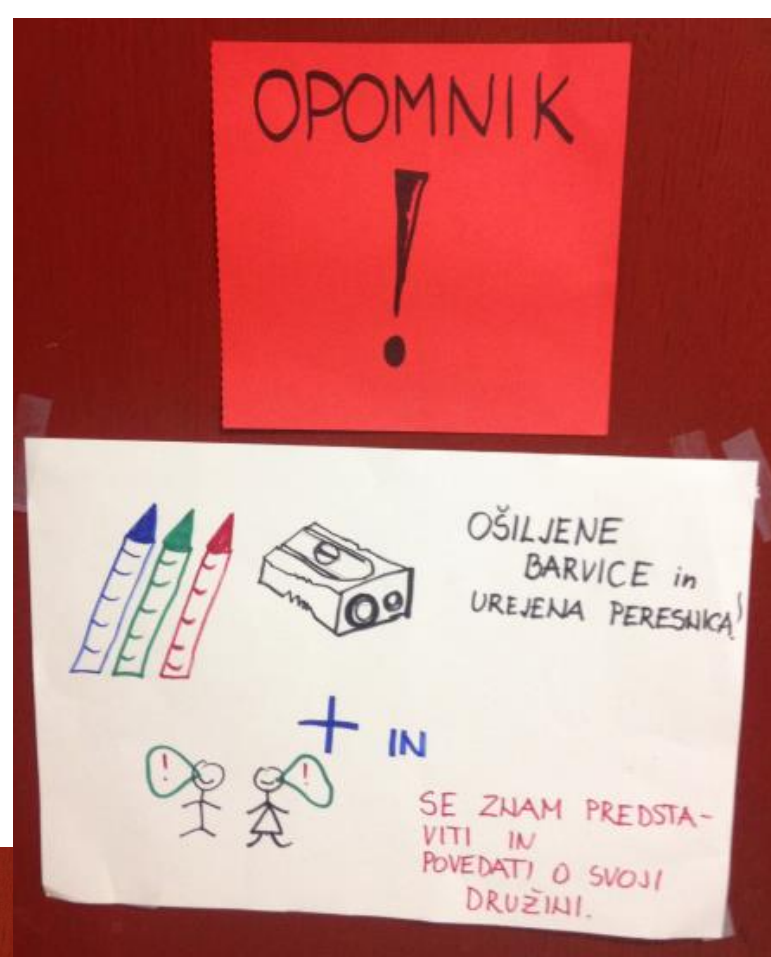 OPOMNIK
!
OŠILJENE
BARVICE in
UREJENA PERESNICA!
+ IN
! !
SE ZNAM PREDSTA-
VITI IN
POVEDATI O SVOJI
DRUŽINI.